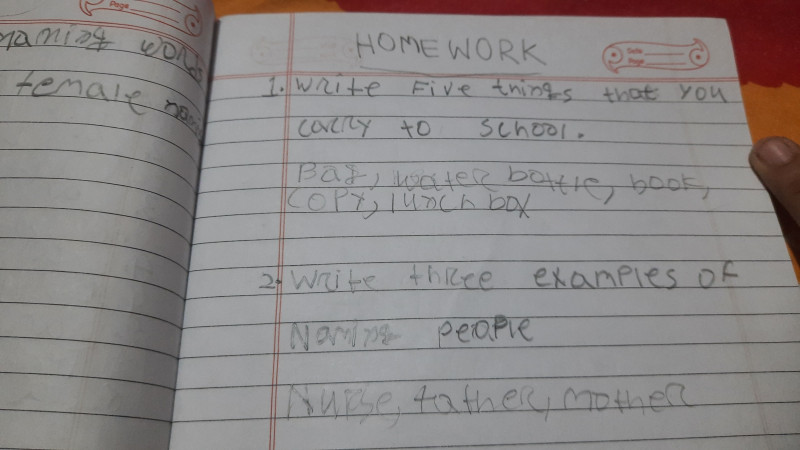 naming words
female
Page
HOMEWORK
Date
Page
1. Write Five things that you
carry to school.
Bag, water bottle, book,
COPY, lunch box
2. Write three examples of
Naming people
Nurse, father, mother